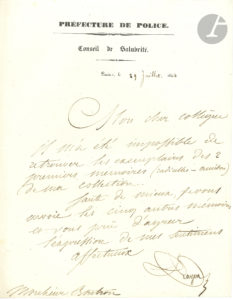 PRÉFECTURE DE POLICE.
Conseil de Salubrité.
Paris, le 29 Juillet
Mon cher collègue
Il m'a été impossible de
retrouver les exemplaires des 2
premiers mémoires (radicelles - amidon)
de ma collection.
faute de mieux, je vous
envoie les cinq autres mémoires
et vous prie d'agréer
l'expression de mes sentiments
affectueux
Payen
Monsieur